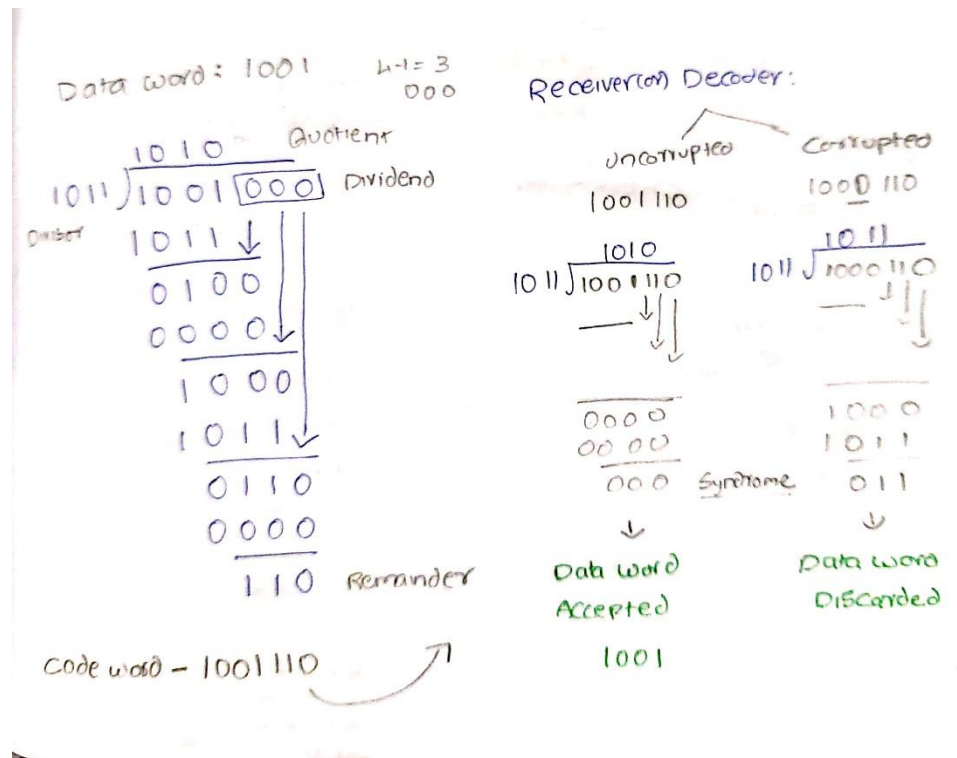 Data word : 1001
4-1= 3
000
1010 Quotient
1011 ) 1001 000 Dividend
1011
0100
0000
1000
1011
0110
0000
110 Remander
Code word - 1001110
Receiver(or) Decoder:
Uncorrupted
1001110
1010
1011 ) 1001110
0000
0000
000 Syndrome
Data word
Accepted
1001
Corrupted
1000110
1011
1011 ) 1000110
1000
1011
011
Data word
Discarded